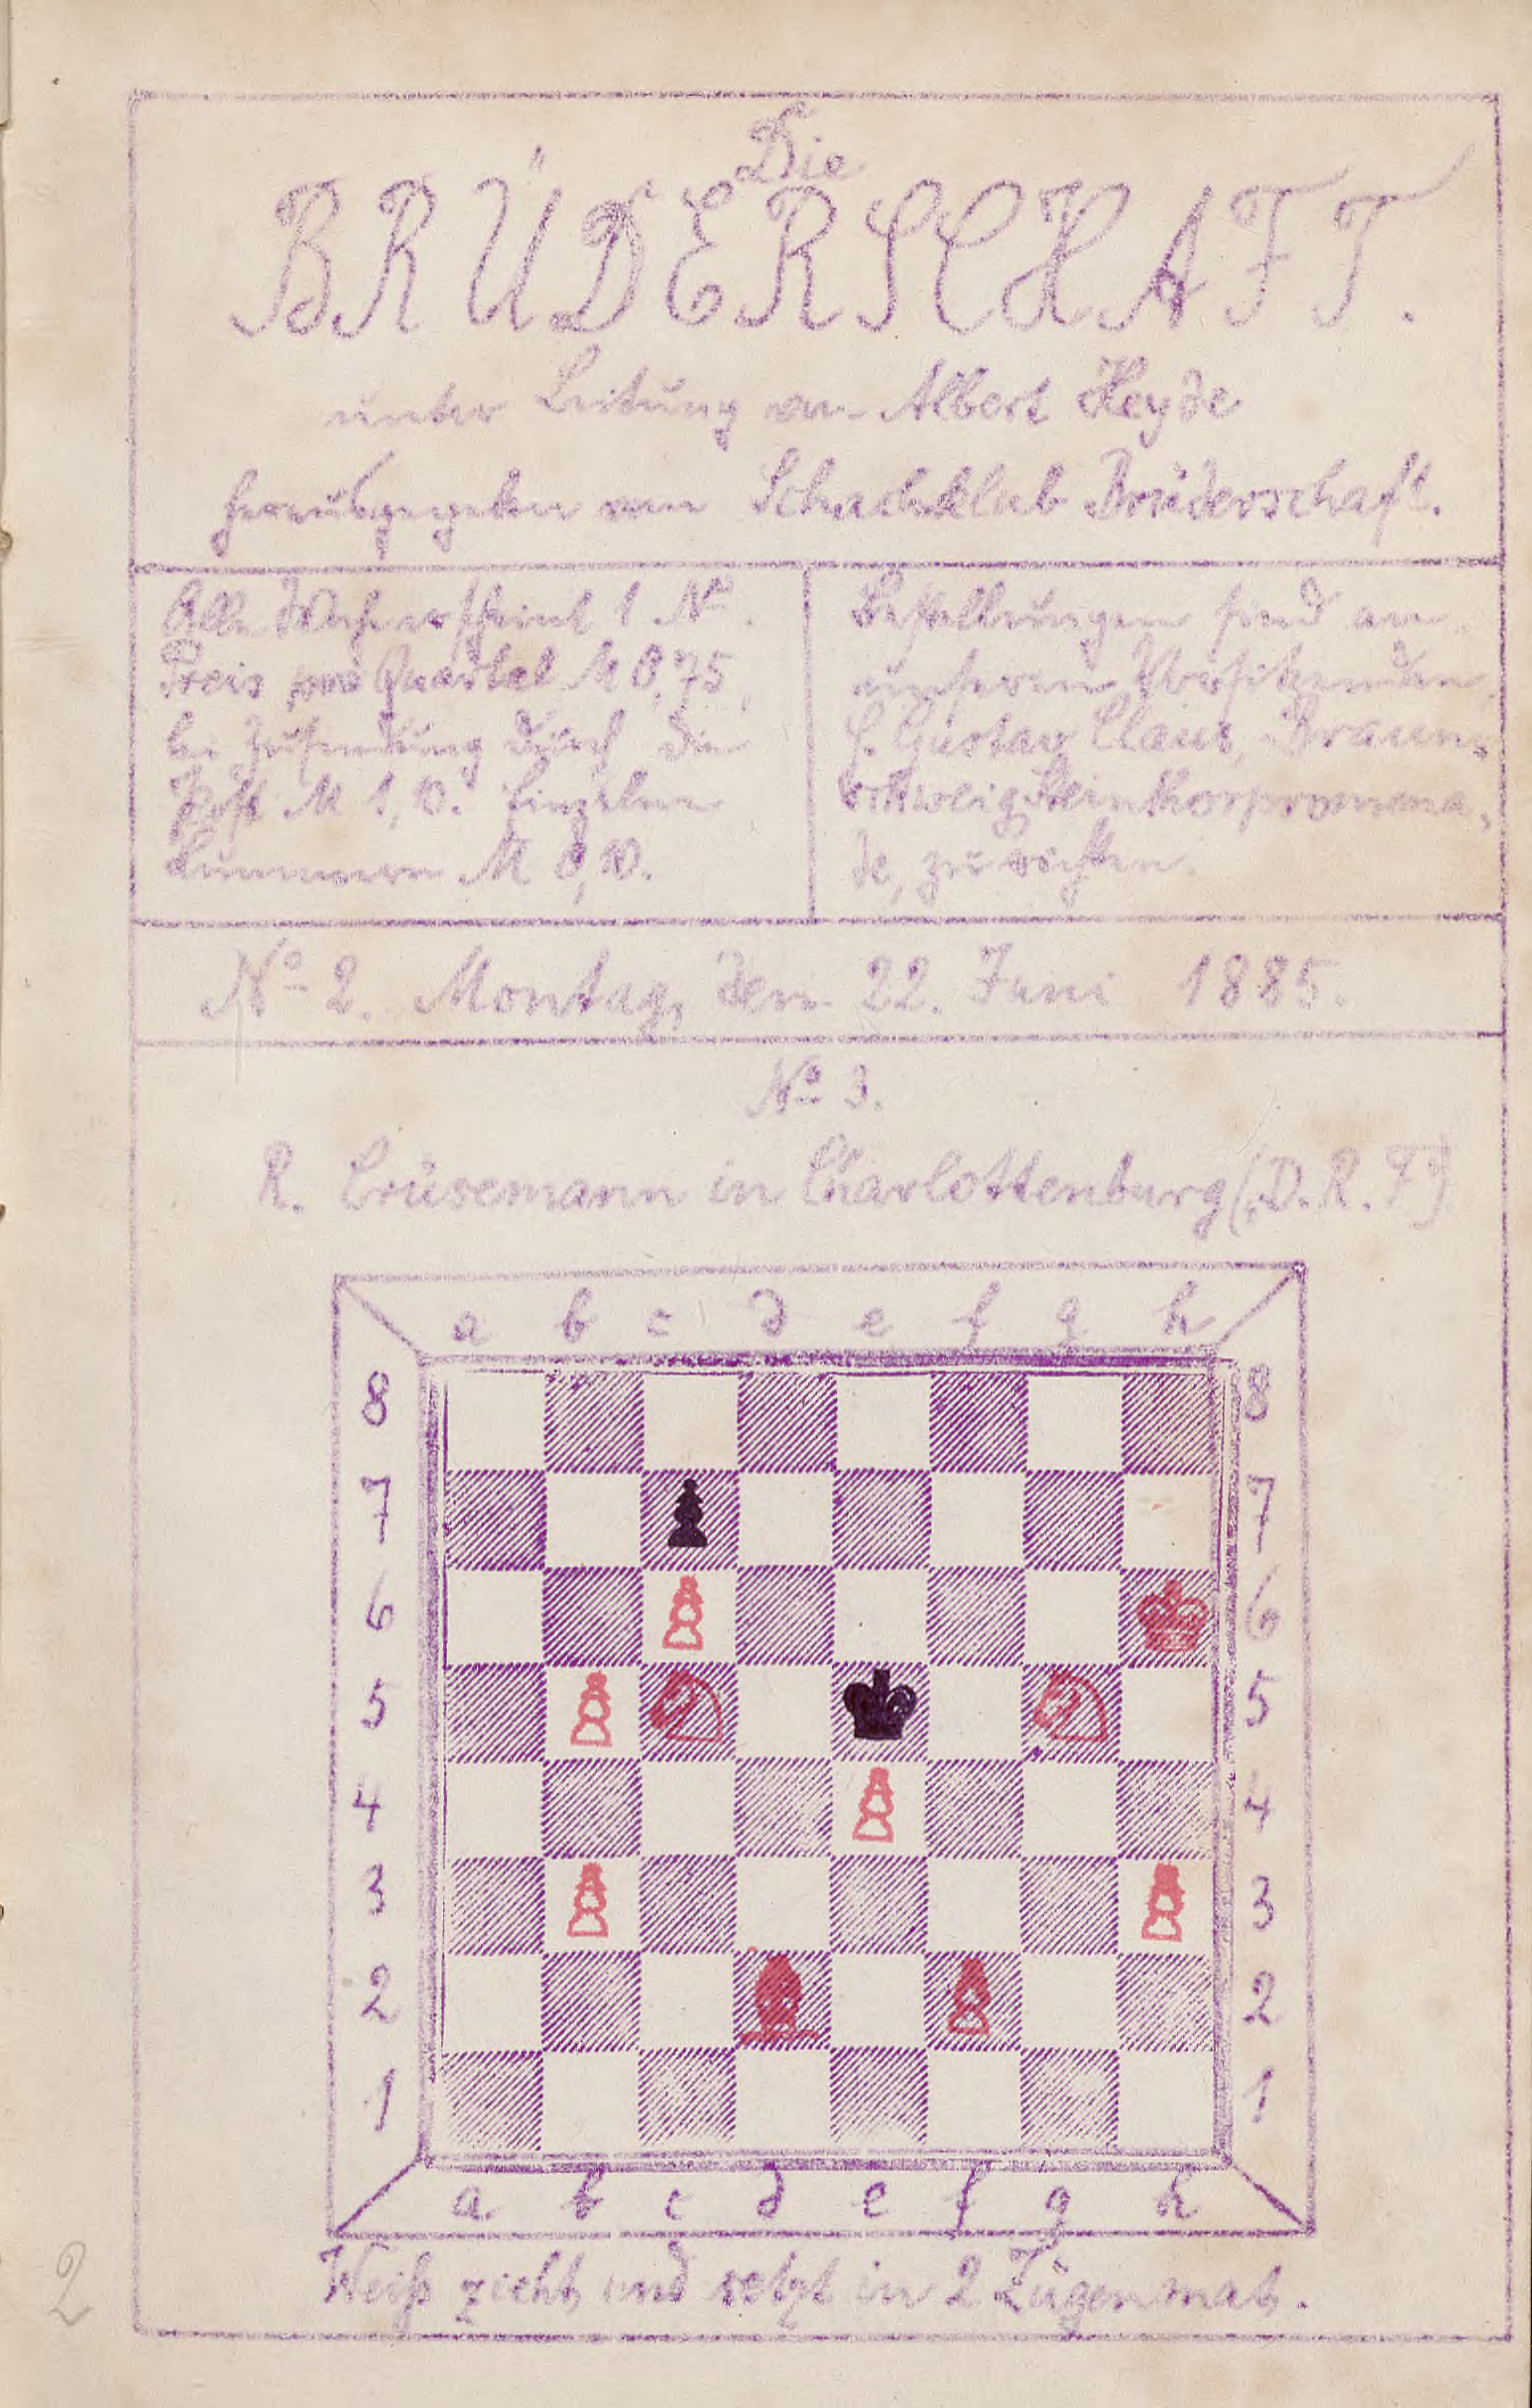 Die
BRÜDERSCHAFT.
unter Leitung von Albert Heyde
herausgegeben vom Schachklub Brüderschaft.
Alle Woche erscheint 1 No.
Preis pro Quartal M 0,75,
bei Zusendung durch die
Post M 1,10. Einzelne
Nummern M 0,10.
Bestellungen sind an
unseren Vorsitzenden,
H. Gustav Claus, Braun-
schweig, Steinthorpromena-
de, zu richten.
No 2. Montag, den 22. Juni 1885.
No 3.
R. Crüsemann in Charlottenburg („D. R. F.“)
a b c d e f g h
8 8
7 7
6 6
5 5
4 4
3 3
2 2
1 1
a b c d e f g h
Weiß zieht und setzt in 2 Zügen mat.
2